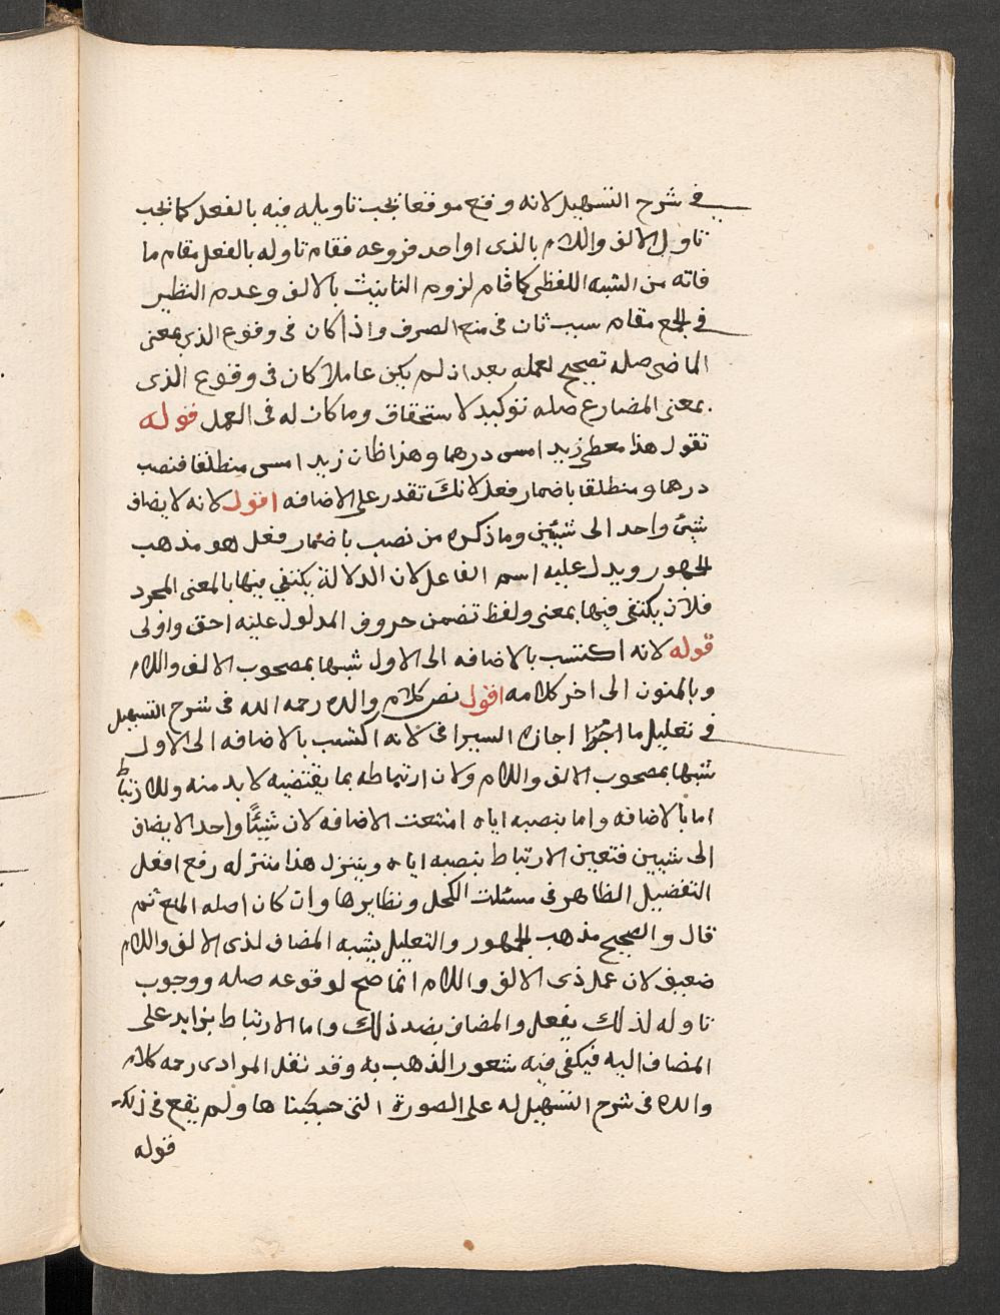 في شرح التسهيل لانه وقع موقعا يجب تاويله فيه بالفعل كما يجب
تاول الالف واللام بالذى او احد فروعه فقام تاوله بالفعل مقام ما
فاته من الشبه اللفظى كما قام لزوم التانيث بالالف وعدم النظير
في الجمع مقام سبب ثان في منع الصرف واذا كان في وقوع الذي بمعنى
الماضى صله تصحيح لعمله بعد ان لم يكن عاملا كان في وقوع الذى
بمعنى المضارع صله توكيد لاستحقاق وما كان له في العمل قوله
تقول هذا معطى زيد امس درهما وهذا ظان زيد امس منطلقا فنصب
درهما ومنطلقا باضمار فعل لانك تقدر على الاضافه اقول لانه لا يضاف
شيئ واحد الى شيئين وما ذكره من نصب باضمار فعل هو مذهب
الجمهور ويدل عليه اسم الفاعل لان الدلالة يكتفي فيها بالمعنى المجرد
فلان يكتفى فيها بمعنى ولفظ تضمن حروف المدلول عليه احق واولى
قوله لانه اكتسب بالاضافه الى الاول شبها بمصحوب الالف واللام
وبالمنون الى اخر كلامه اقول نص كلام والده رحمه الله في شرح التسهيل
في تعليل ما اجازه السيرافى لانه اكتسب بالاضافه الى الاول
شبها بمصحوب الالف واللام ولان ارتباطه بما يقتضيه لا بد منه وللارتباط
اما بالاضافه واما بنصبه اياه امتنعت الاضافه لان شيئًا واحد الايضاف
الى شيين فتعين الارتباط بنصبه اياه وينزل هذا منزله رفع افعل
التفضيل الظاهر في مسئلت الكحل ونظايرها وان كان اصله المنع ثم
قال والصحيح مذهب الجمهور والتعليل بشبه المضاف لذى الالف واللام
ضعيف لان عمل ذى الالف واللام انما صح لوقوعه صله ووجوب
تاوله لذلك بفعل والمضاف بضد ذلك واما الارتباط بزايد على
المضاف اليه فيكفى فيه شعور الذهب به وقد نقل المرادى رحمه كلام
والده في شرح التسهيل له على الصورة التى حيكينا ها ولم يقع في ذلك
قوله